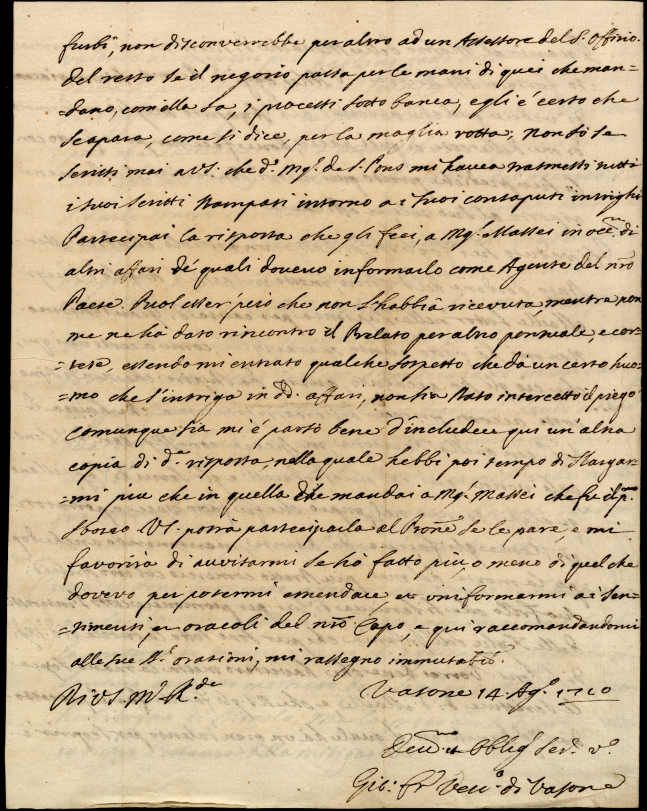 furbi, non disconverrebbe per altro ad un Assessore del S. Offizio.
del resto se il negozio passa per le mani di quei che man=
=dano, com'ella sa, i processi sotto banca, egli é certo che
scapara, come si dice, per la maglia rotta; Non só se
scrissi mai a V.S. che d.º Mg.r de S. Pons mi havea trasmessi tutti
i suoi scritti stampati intorno a i suoi consaputi intrighi
Partecipai la risposta che gli feci, a Mg.r Massei in occ.ne di
altri affari dé quali dovevo informarlo come Agente del nrõ
Paese. Puol esser peró che non l'habbia ricevuta, mentre non
me ne há dato rincontro il Prelato per altro pontuale, e cor=
=tese, essendomi entrato qualche sospetto che da un certo huo=
=mo che s'intriga in dd. affari, non sia stato intercetto il piego
comunque sia mi é parso bene d'includere qui un'altra
copia di d.ª risposta, nella quale hebbi poi tempo di slargar=
=mi piu che in quella che mandai a Mg.r Massei che fu il p.mo
sbozzo. V.S. potrà parteciparla al Prone se le pare, e mi
favorirà di avvisarmi se hó fatto piu, o meno di quel che
dovevo per potermi emendare, et uniformarmi a i sen=
=timenti, et oracoli del nrõ Capo, e qui raccomandandomi
alle sue S.e orationi, mi rassegno immutabil.
Di V.S. M.to R.da
Vasone 14 Ag.º 1710
Dev.mo et Obblig. Ser. v.º
Gio: Fr. Vesc.º di Vasone